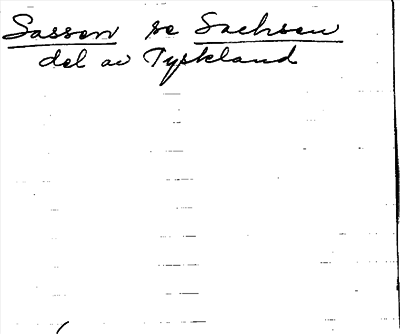 Sassen se Sachsen
del av Tyskland